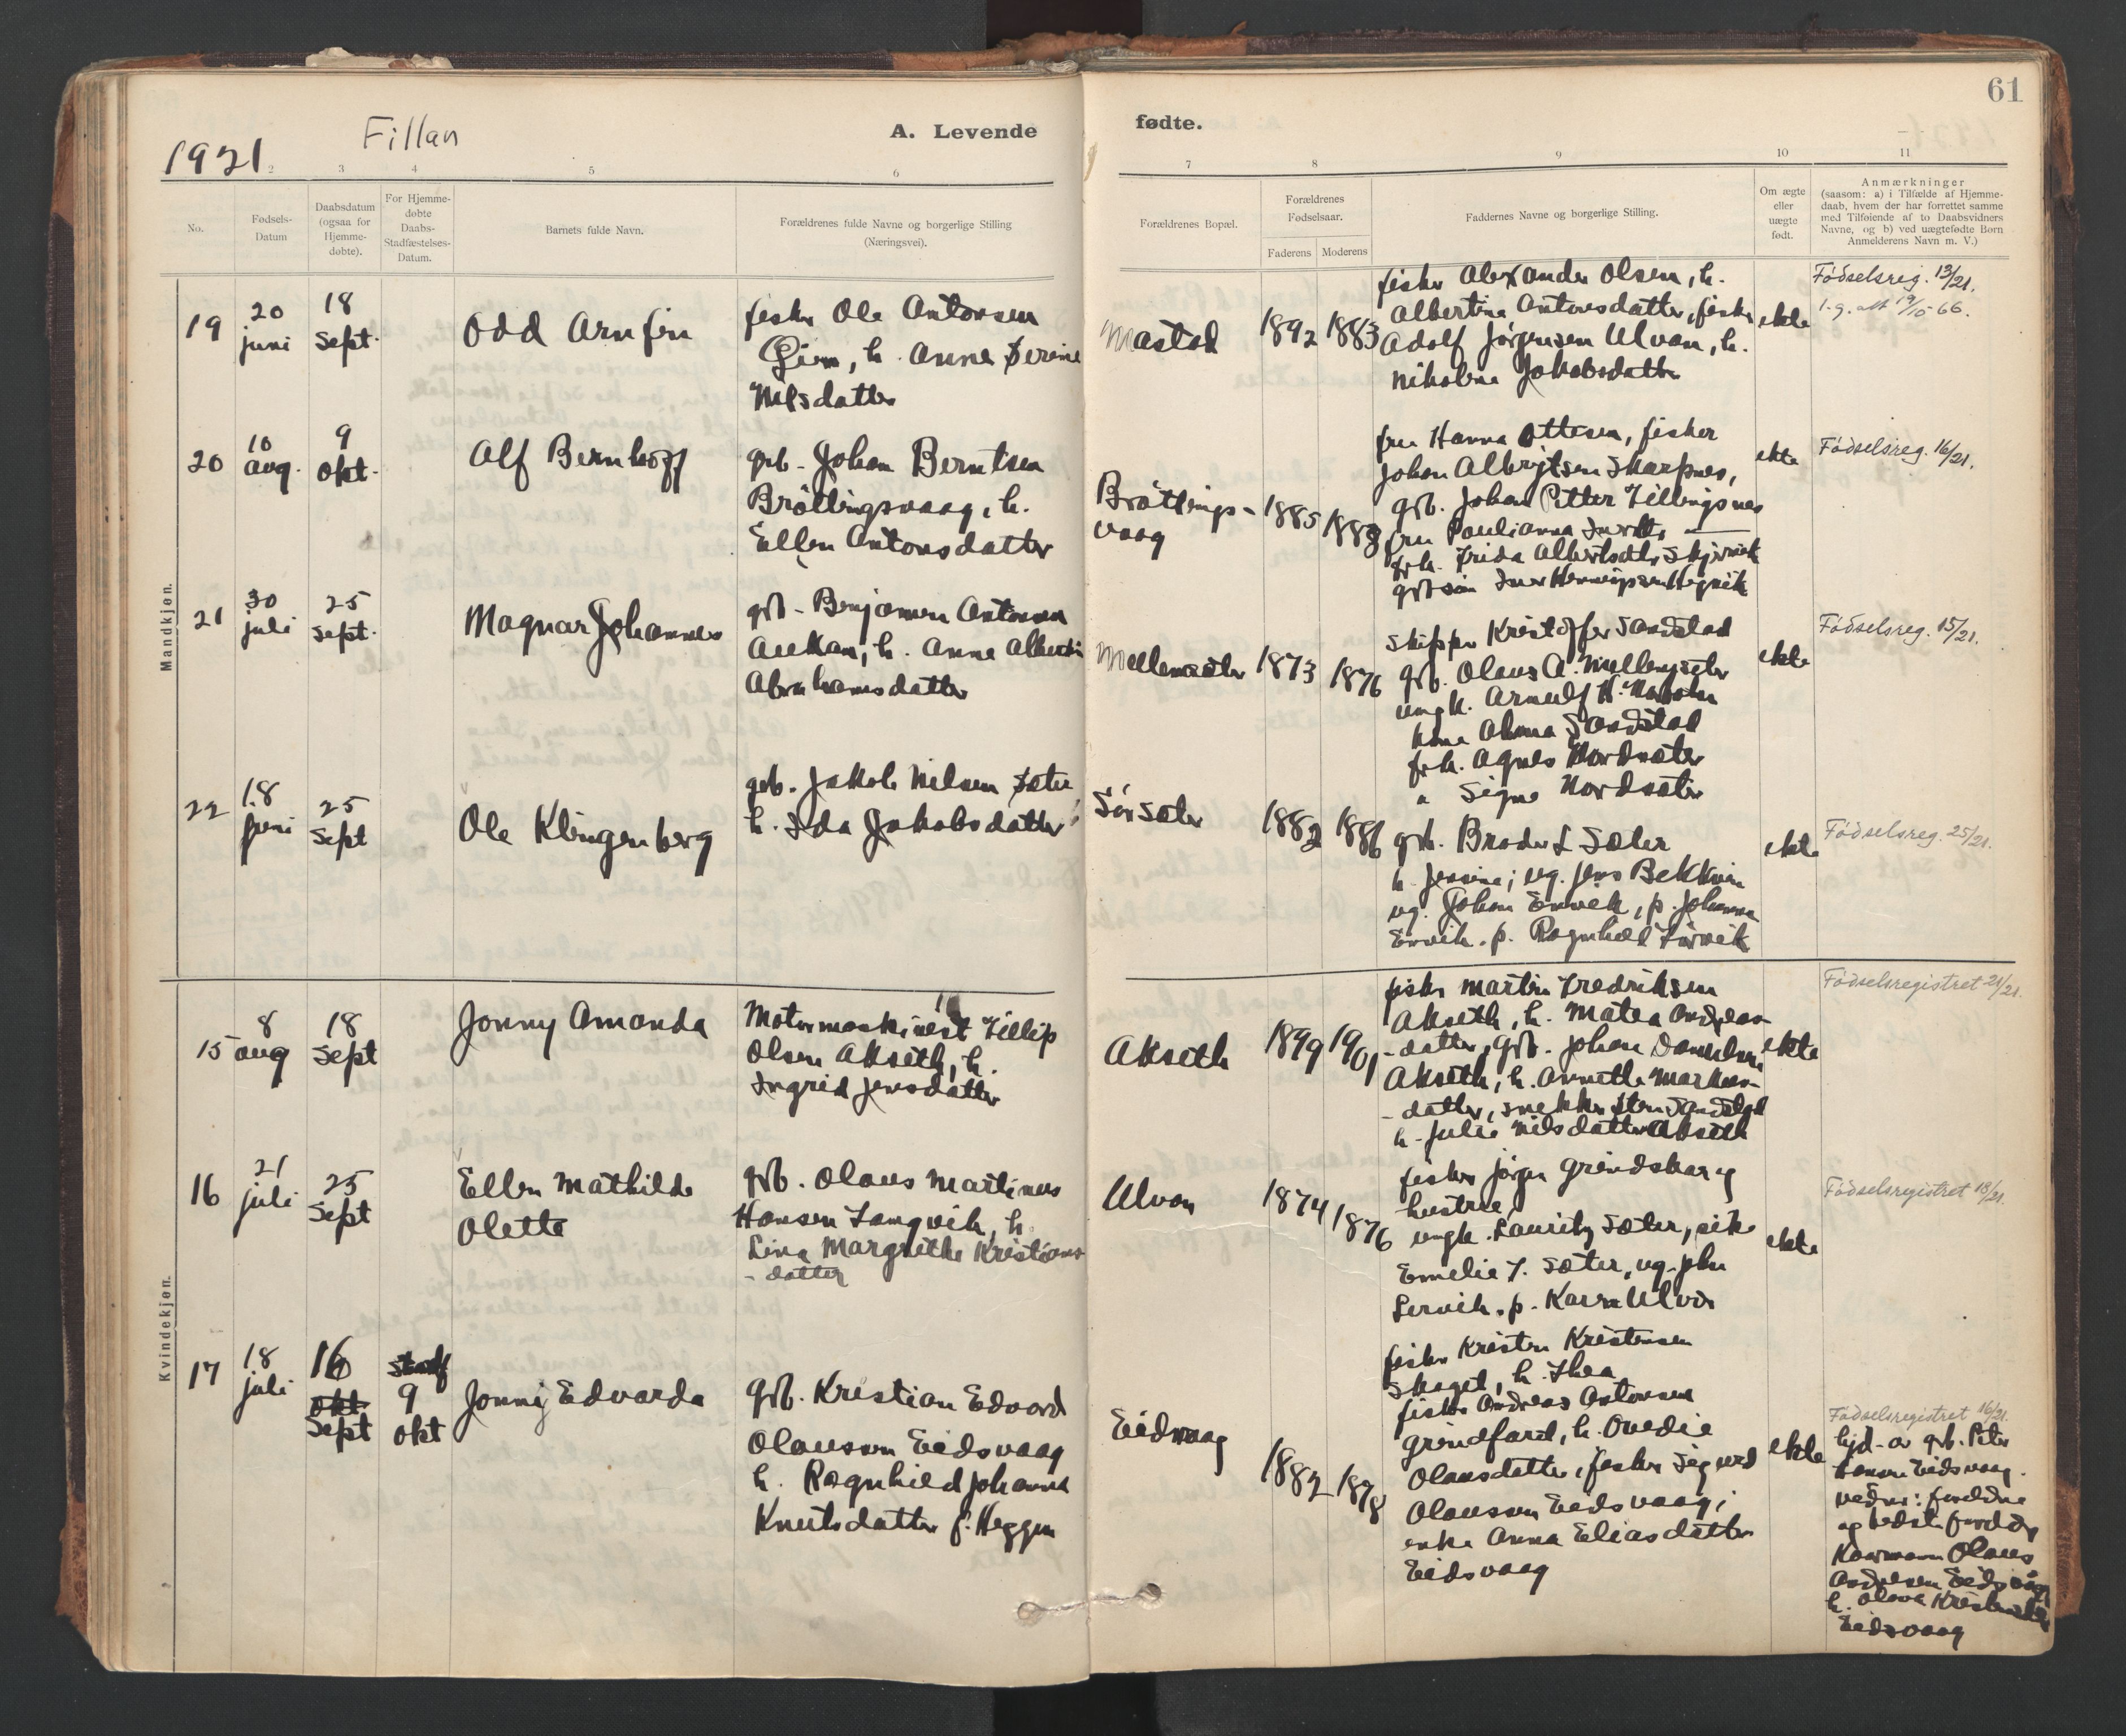 61
1921
Fillan
A. Levende
fødte.
2
3
4
5
6
7
8
9
10
11
No.
Fødsels-
Datum
Daabsdatum
(ogsaa for
Hjemme-
døbte).
For Hjemme-
døbte
Daabs-
Stadfæstelses-
Datum.
Barnets fulde Navn.
Forældrenes fulde Navne og borgerlige Stilling
(Næringsvei).
Forældrenes Bopæl.
Forældrenes
Fødselsaar.
Faderens
Moderens
Faddernes Navne og borgerlige Stilling.
Om ægte
eller
uægte
født.
Anmærkninger
(saasom: a) i Tilfælde af Hjemme-
daab, hvem der har forrettet samme
med Tilføiende af to Daabsvidners
Navne, og b) ved uægtefødte Børn
Anmelderens Navn m. V.)
Mandkjøn.
19
20
juni
18
Sept.
Odd Arnfin
fisker Ole Antonsen
h. Anna Serine
Nilsdatter
Mastad
1892
1883
fisker Alexander Olsen, h.
Albertine Antonsdatter, fisker
Adolf Jørgensen Ulvan, h.
Nikoline Jakobsdatter
ekte
Fødselsreg. 13/21.
20
10
aug.
9
okt.
Alf Bernhoff
grb. Johan Berntsen
Bråttingsvaag, h.
Ellen Antonsdatter
Bråttings-
vaag
1885
1888
fru Hanna Ottesen, fisker
Johan Albrigtsen Skarpnes,
grb. Johan Petter Fillingsnes
fru Paulianna
frk. Frida Albertsdatter
ekte
Fødselsreg. 16/21.
21
30
juli
25
Sept.
Magnar Johannes
grb. Benjamin Antonsen
Aukan, h. Anna
Abrahamsdatter
Mellemsæter
1873
1876
Skipper Kristoffer Sandstad
grb. Olaus A. Mellemsæter
ungk. Arnulf
Sandstad
frk. Agnes Nordsæter
" Signe Nordsæter
ekte
Fødselsreg. 15/21.
22
18
juni
25
Sept
Ole Klingenberg
grb. Jakob Nilsen Sæter
h. Ida Jakobsdatter
Sørsæter
1882
1886
grb. Broder L Sæter
h. Jensine; ug. Jens Bekkvik
ug. Johan Ervik, p. Johanna
Ervik. p. Ragnhild
ekte
Fødselsreg. 25/21.
Kvindekjøn.
15
8
aug
18
Sept
Jonny Amanda
Motormaskinest Fillip
Olsen Akseth, h.
Ingrid Jensdatter
Akseth
1899
1901
fisker Martin Fredriksen
Akseth, h. Matea Andreas-
-datter, grb. Johan Danielsen
Akseth, h. Annette Markus-
-datter, snekker Sten Sandstad
h. Julie Nilsdatter Akseth
ekte
Fødselsregistret 21/21.
16
21
juli
25
Sept
Ellen Mathilde
Olette
grb. Olaus Martinus
Hansen Langvik, h.
Lina Margrethe Kristians-
-datter
Ulvan
1874
1876
fisker Jørgen Grindskar og
hustru,
ungk. Lauritz Sæter, pike
Emelie J. Sæter, ug.
p. Karen Ulvan
ekte
Fødselsregistret 18/21.
17
18
juli
16
okt.
Sept
9
okt
Jonny Edvarda
grb. Kristian Edvard
Olausen Eidsvaag
h. Ragnhild Johanna
Knutsdatter f. Heggen
Eidsvaag
1882
1878
fisker Kristen Kristensen
Skaget, h. Thea
fisker Andreas Antonsen
Grindfard, h. Ovedie
Olausdatter, fisker Sigurd
Olausen Eidsvaag;
enke Anna Eliasdatter
Eidsvaag
ekte
Fødselsregistret 16/21.
hjd. av grb. Peter
Hansen Eidsvaag.
vidner: foreldre
og bedsteforeldre
Kaarmann Olaus
Andersen Eidsvaag
h. Olava
Eidsvaag